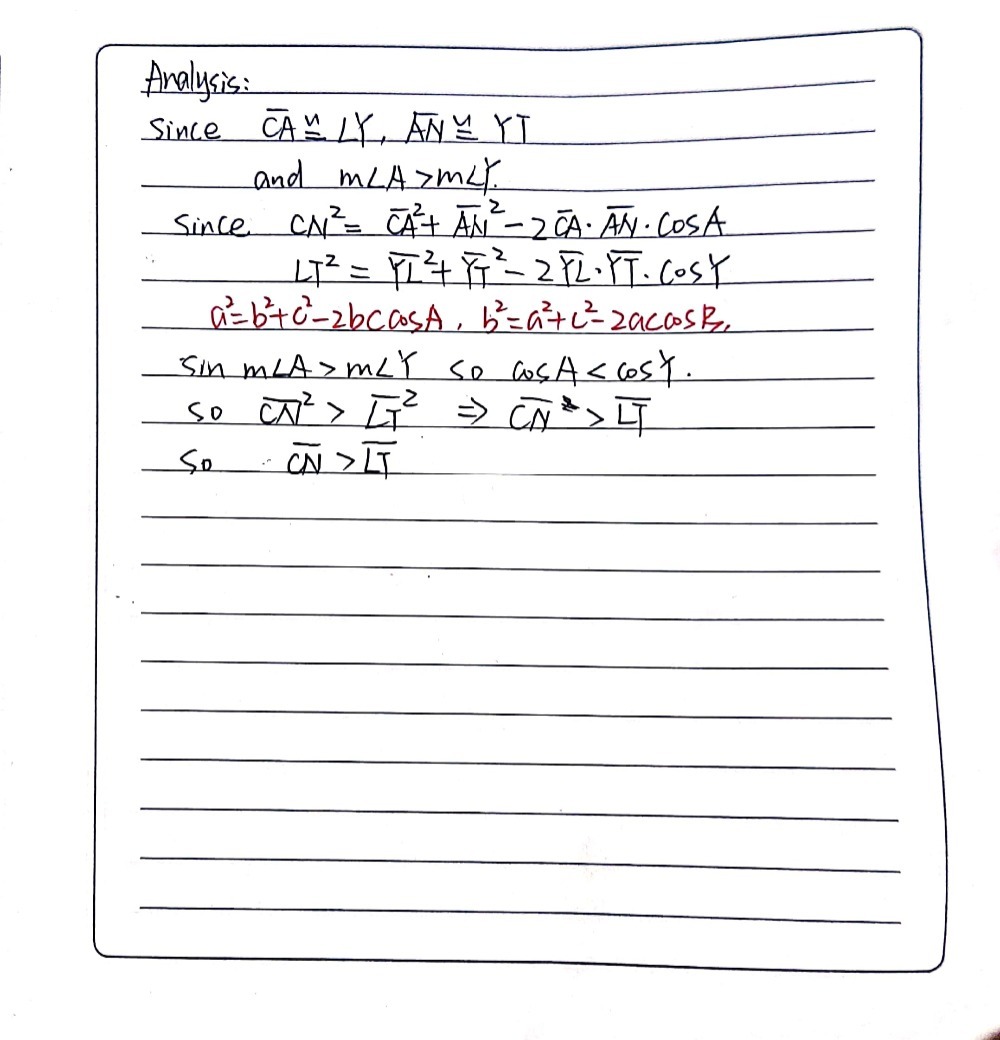 Analysis:
Since C̅A̅ ≅ LY, A̅N̅ ≅ YT
and m∠A > m∠Y.
Since CN² = C̅A̅² + A̅N̅² - 2 C̅A̅ · A̅N̅ · cosA
LT² = Y̅L̅² + Y̅T̅² - 2 Y̅L̅ · Y̅T̅ · cosY
a² = b² + c² - 2bc cosA, b² = a² + c² - 2ac cosB,
Sin m∠A > m∠Y so cosA < cosY.
so C̅N̅² > L̅T̅² ⇒ C̅N̅ > L̅T̅
So C̅N̅ > L̅T̅